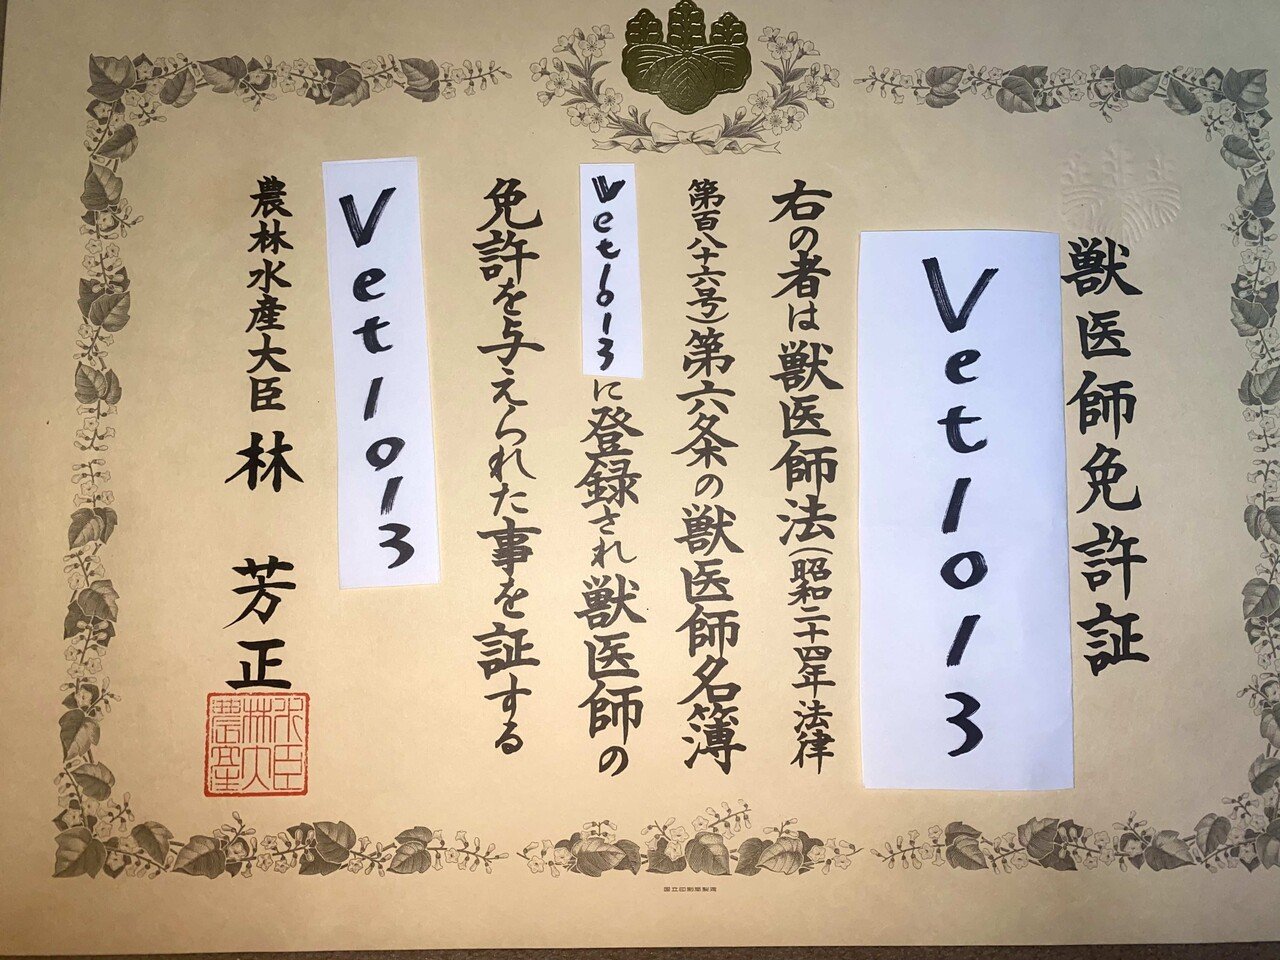 獣医師免許証
Vet1013
右の者は獣医師法(昭和二十四年法律
第百八十六号)第六条の獣医師名簿
Vet1013に登録され獣医師の
免許を与えられた事を証する
Vet1013
農林水産大臣 林 芳正
農林水産大臣
国立印刷局製造